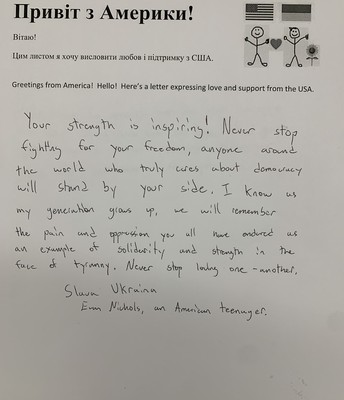 Привіт з Америки!
Вітаю!
Цим листом я хочу висловити любов і підтримку з США.
Greetings from America! Hello! Here's a letter expressing love and support from the USA.
Your strength is inspiring! Never stop
fighting for your freedom, anyone around
the world who truly cares about democracy
will stand by your side. I know as
my generation grows up, we will remember
the pain and oppression you all have endured as
an example of solidarity and strength in the
face of tyranny. Never stop loving one-another.
Slava Ukraina
Nichols, an American teenager.